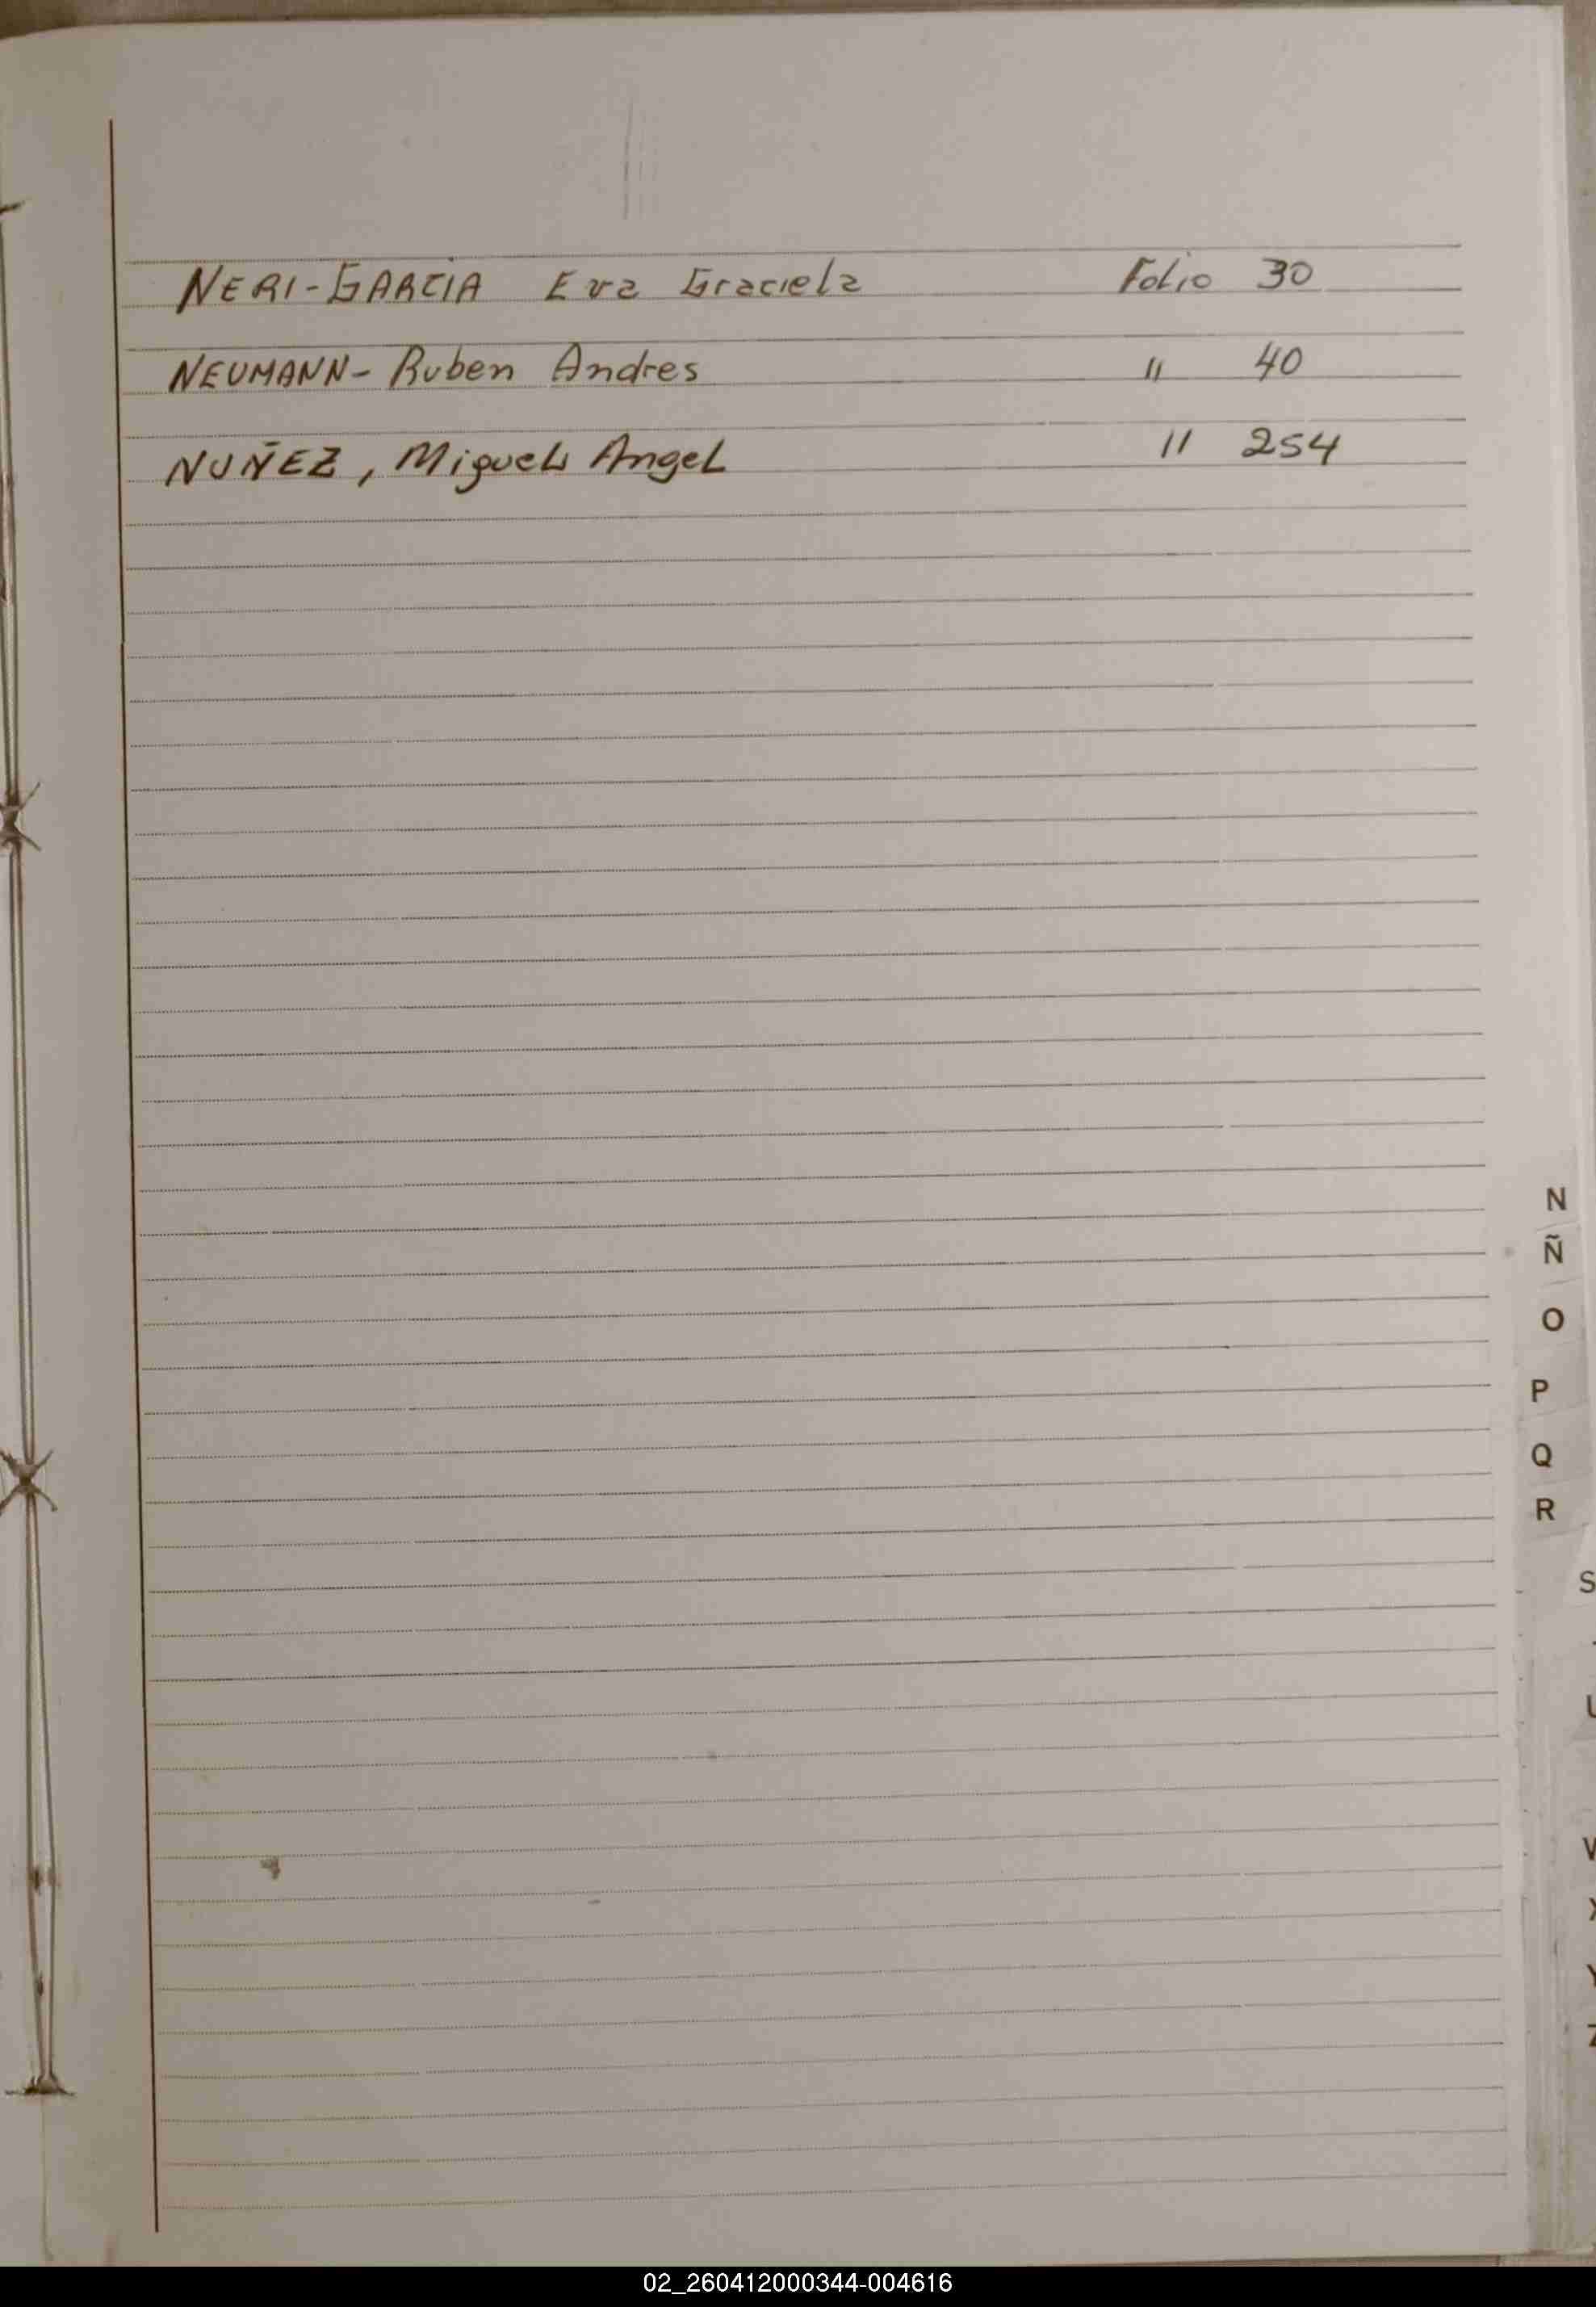 NERI-GARCIA Eva Graciela Folio 30
NEUMANN- Ruben Andres " 40
NUÑEZ, Miguel Angel " 254
N
Ñ
O
P
Q
R
S
U
V
X
Y
Z
02_260412000344-004616